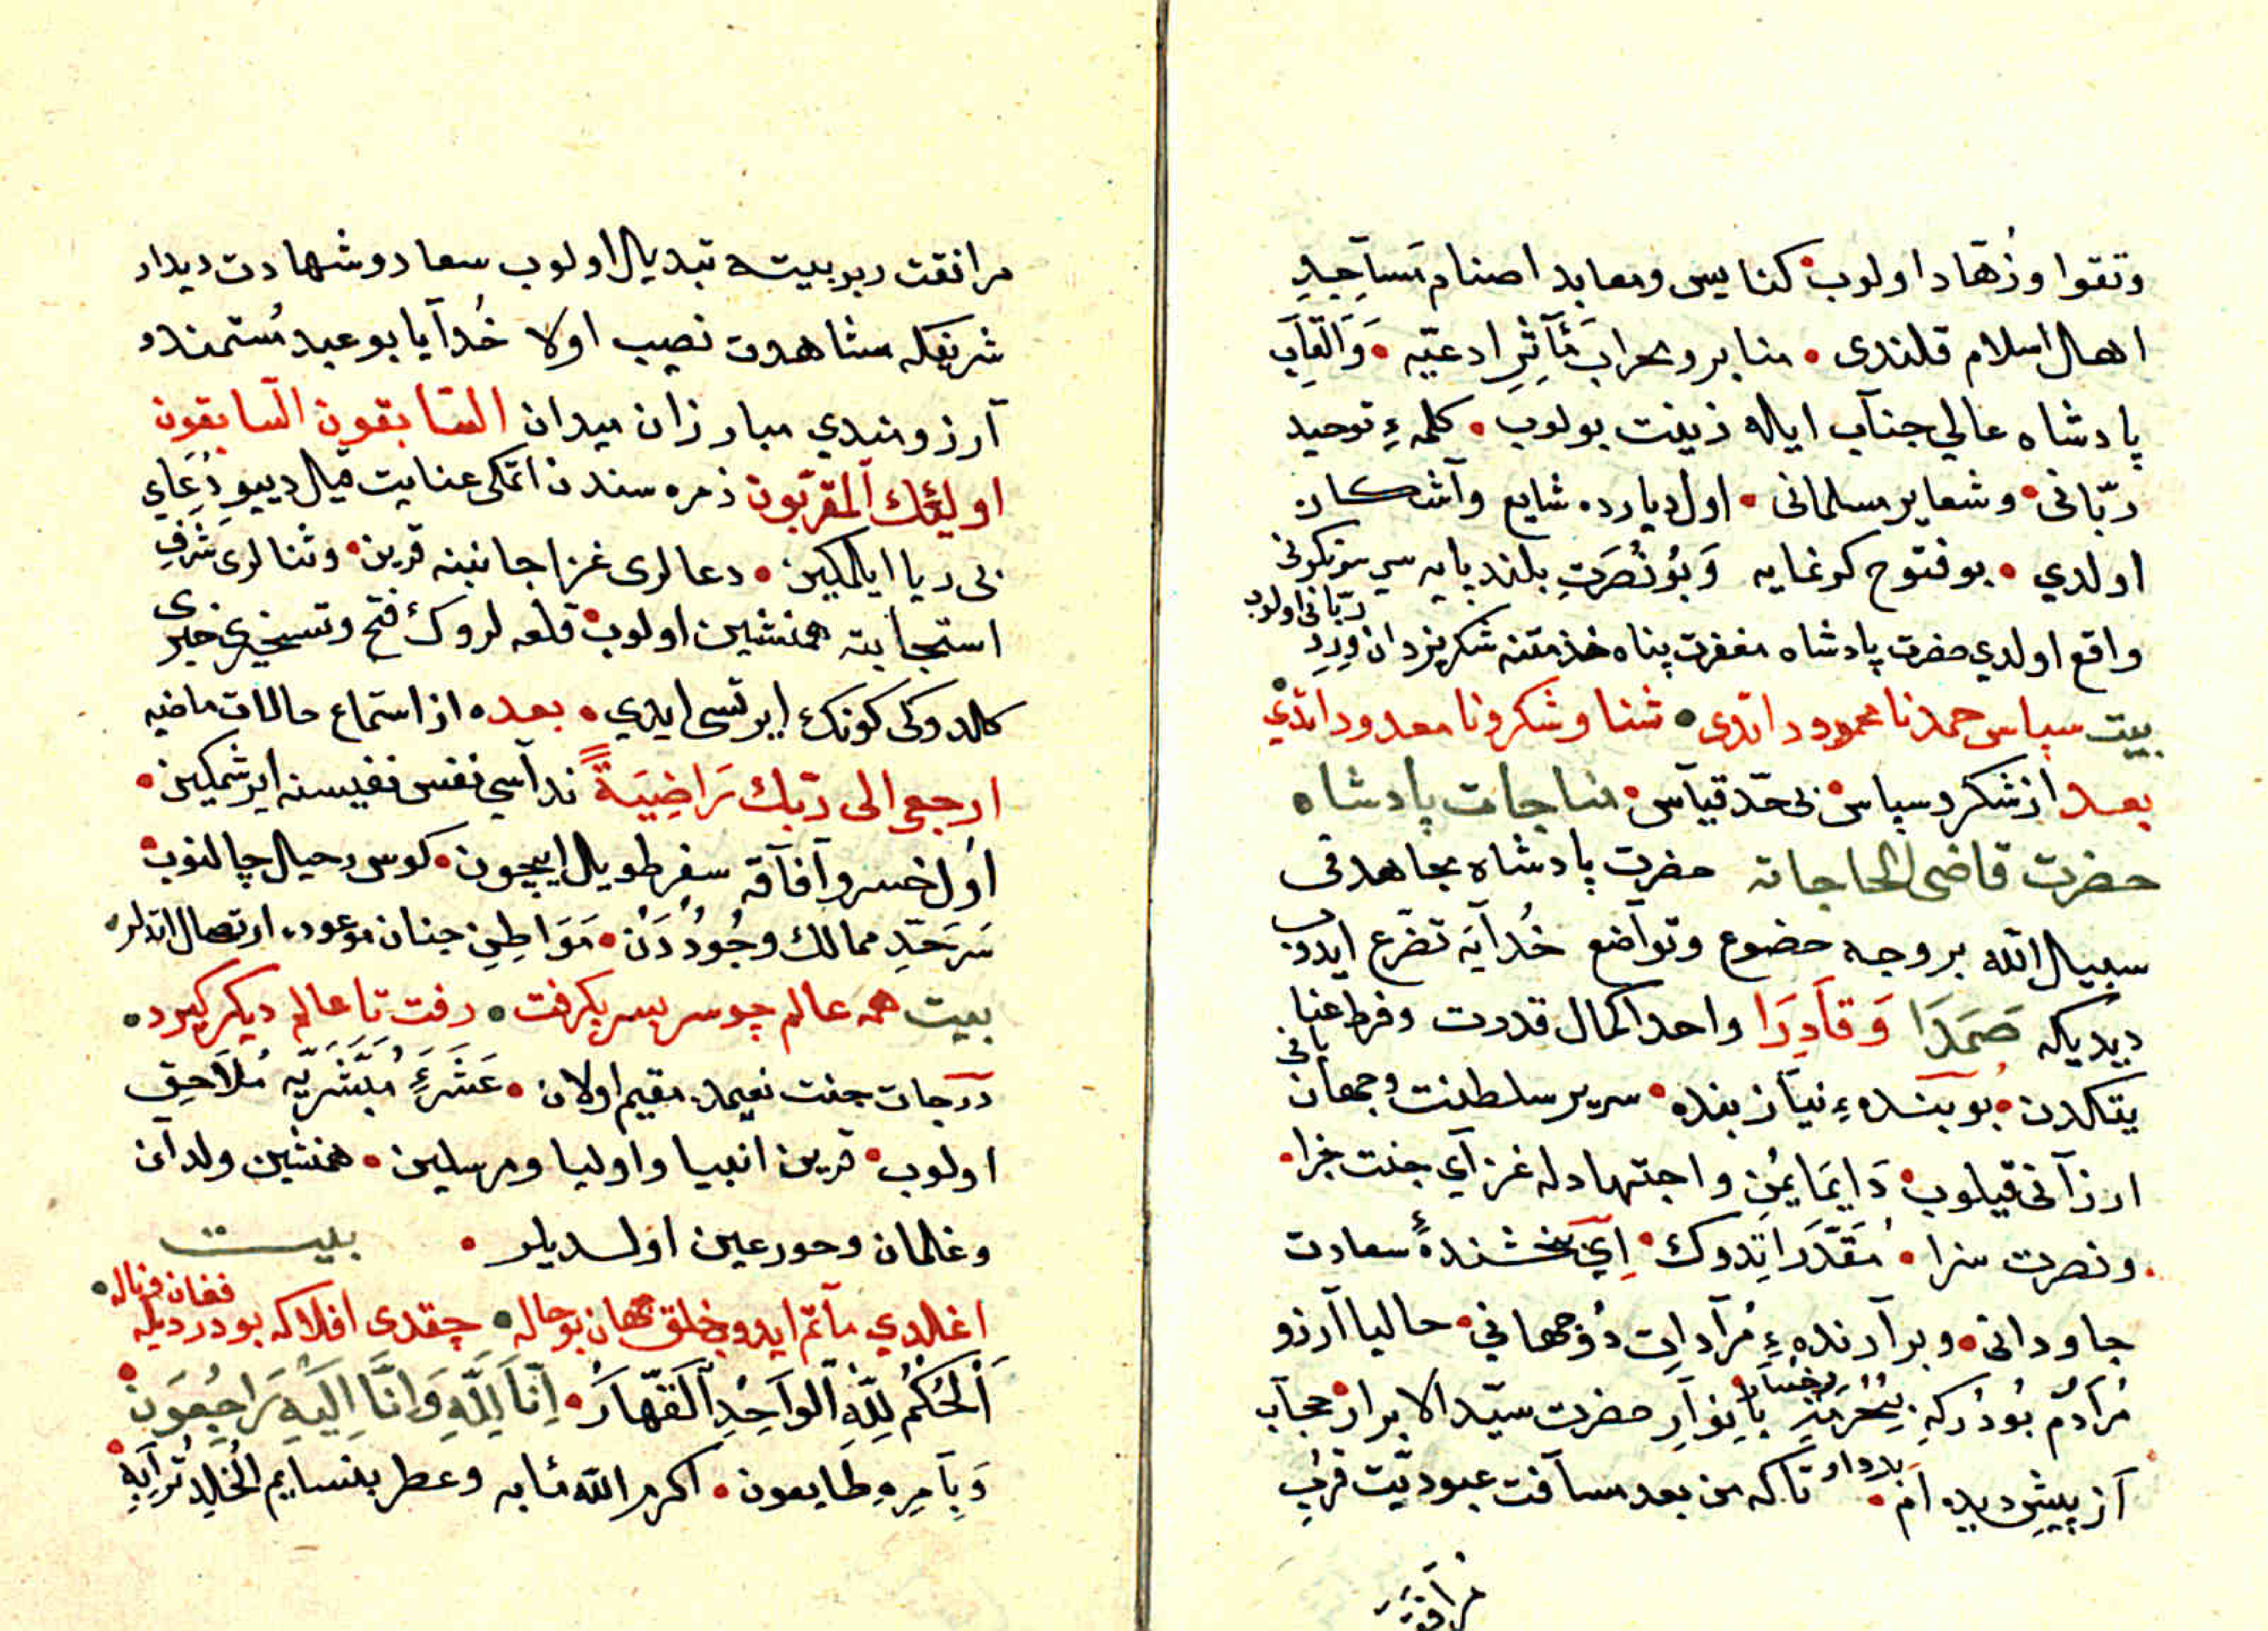 وتقوا وزهاد اولوب كنايس ومعابد اصنام مساجد
اهال اسلام قلندى • منابر ومحراب مآثر ادعيّه • والقاب
پادشاه عالي جناب ايله زينت بولوب • كلمهٔ توحيد
ربّانى • وشعاير مسلمانى • اول ديارده شايع وآشكار
اولدي • بو فتوح كرنمايه وبو نصرت بلند پايه
واقع اولدي حضرت پادشاه مغفرت پناه خدمتنه شكر يزدان ورد
ربّانى اولوب
بيت سپاس حمد نا محدود اتدى • ثنا وشكر ونا معدود اتدي
بعد از شكر وسپاس بى حدّ قياس • مناجات پادشاه
حضرت قاضى الحاجات حضرت پادشاه مجاهد فى
سبيل الله بر وجه خضوع وتواضع خدايه تضرع ايدوب
ديديكه صمدا وقادرا واحدا كمال قدرت وفرط عنا
يتكدن • بو بندهٔ نياز بنده • سرير سلطنت وجهان
بانى
ارزآنى قيلوب دايما يمن واجتهادله غزاي جنت جزا •
ونصرت سزا • مقدّر اتدوك • اي بخشندهٔ سعادت
جاودانى • وبرآرندهٔ مرآدات دو جهاني • حاليا آرزو
مرادم بودركه با نوار حضرت سيّد الابرار حجاب
از پيش ديده ام • بردار تاكه من بعد مسافت عبوديّت قرب
مرافقت
مرافقت ربوبيته تبديل اولوب سعاد وشهادت ديدار
شريفكه مشاهدت نصيب اولا خدايا بو عبد مستمند و
آرزومندي مبارزان ميدان السّابقون السّابقون
اولئك المقرّبون زمره سندن اتمكى عنايت قيل ديپو دعاي
بى ريا ايلكين • دعالرى غزا جانبنه قرين • وثنالرى شرف
استجابته همنشين اولوب قلعه لروك فتح وتسخيرى خبرى
كلدوكى كونك ايرتسى ايدي • بعده از استماع حالات ماضيه
ارجعى الى ربّك راضيةً ندآسي نفس نفيسنه ايرشمكين •
اول خسرو آفاقه سفر طويل ايچون • كوس رحيل چالنوب
سرحدّ ممالك وجوددن • مواطن جنان موعوده ارتحال اتدلر •
بيت همه عالم چو سر بسر بكرفت • رفت تا عالم ديكر كيرد •
درجات جنت نعيمده مقيم اولان • عشرهٔ مبشّريه ملاحق
اولوب • قرين انبيا واوليا ومرسلين • همنشين ولدان
وغلمان وحورعين اولديلر • بيت
اغلدي مآتم ايدوب خلق جهان بو حاله • چقدى افلاكه بو درديله
فغان وناله •
الحكم للّه الواحد القهّار • انّا للّه وانّا اليه راجعون •
وبامره طايعون • اكرم الله مٔابه وعطر بنسايم الخلد ترابه •